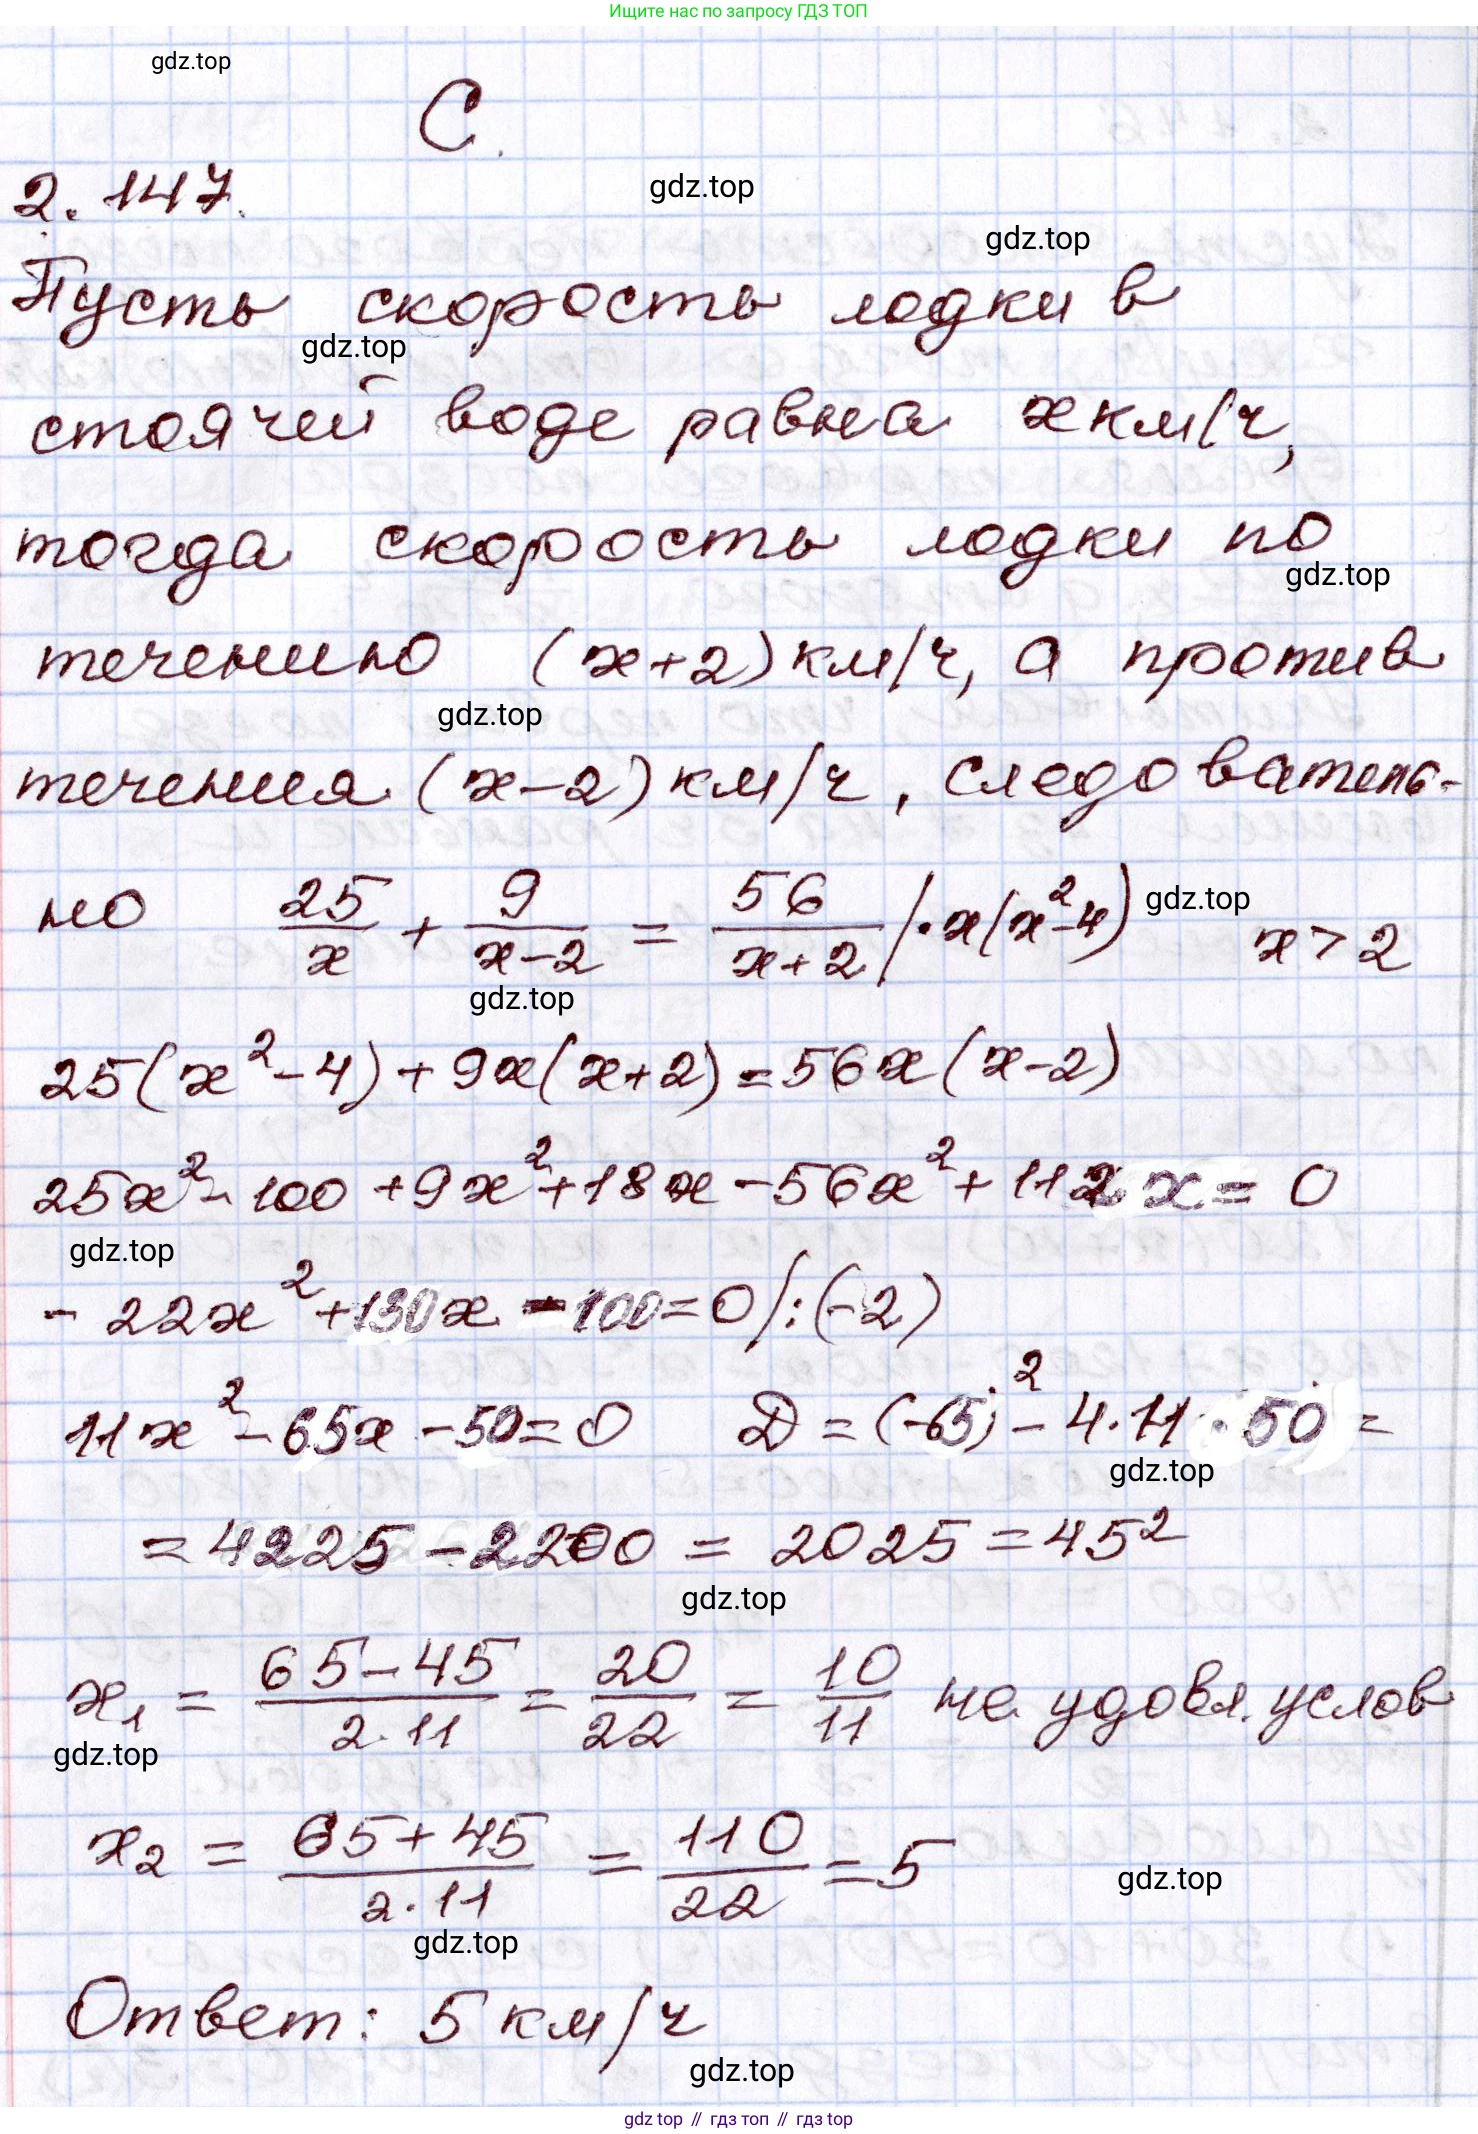 Ищите нас по запросу ГДЗ ТОП
gdz.top
С.
2.147.
gdz.top
gdz.top
Пусть скорость лодки в
gdz.top
стоячей воде равна x км/ч,
тогда скорость лодки по
gdz.top
течению (x+2) км/ч, а против
gdz.top
течения (x-2) км/ч, следователь-
но 25/x + 9/(x-2) = 56/(x+2) |·x(x²-4) x > 2
gdz.top
gdz.top
25(x²-4)+9x(x+2)=56x(x-2)
25x²-100+9x²+18x-56x²+112x=0
gdz.top
-22x²+130x-100=0 |:(-2)
11x²-65x-50=0 D=(-65)²-4·11·50=
gdz.top
=4225-2200=2025=45²
gdz.top
x₁ = (65-45)/(2·11) = 20/22 = 10/11 не удовл. услов
gdz.top
x₂ = (65+45)/(2·11) = 110/22 = 5
gdz.top
gdz.top
Ответ: 5 км/ч
gdz.top
gdz.top // гдз топ // гдз top